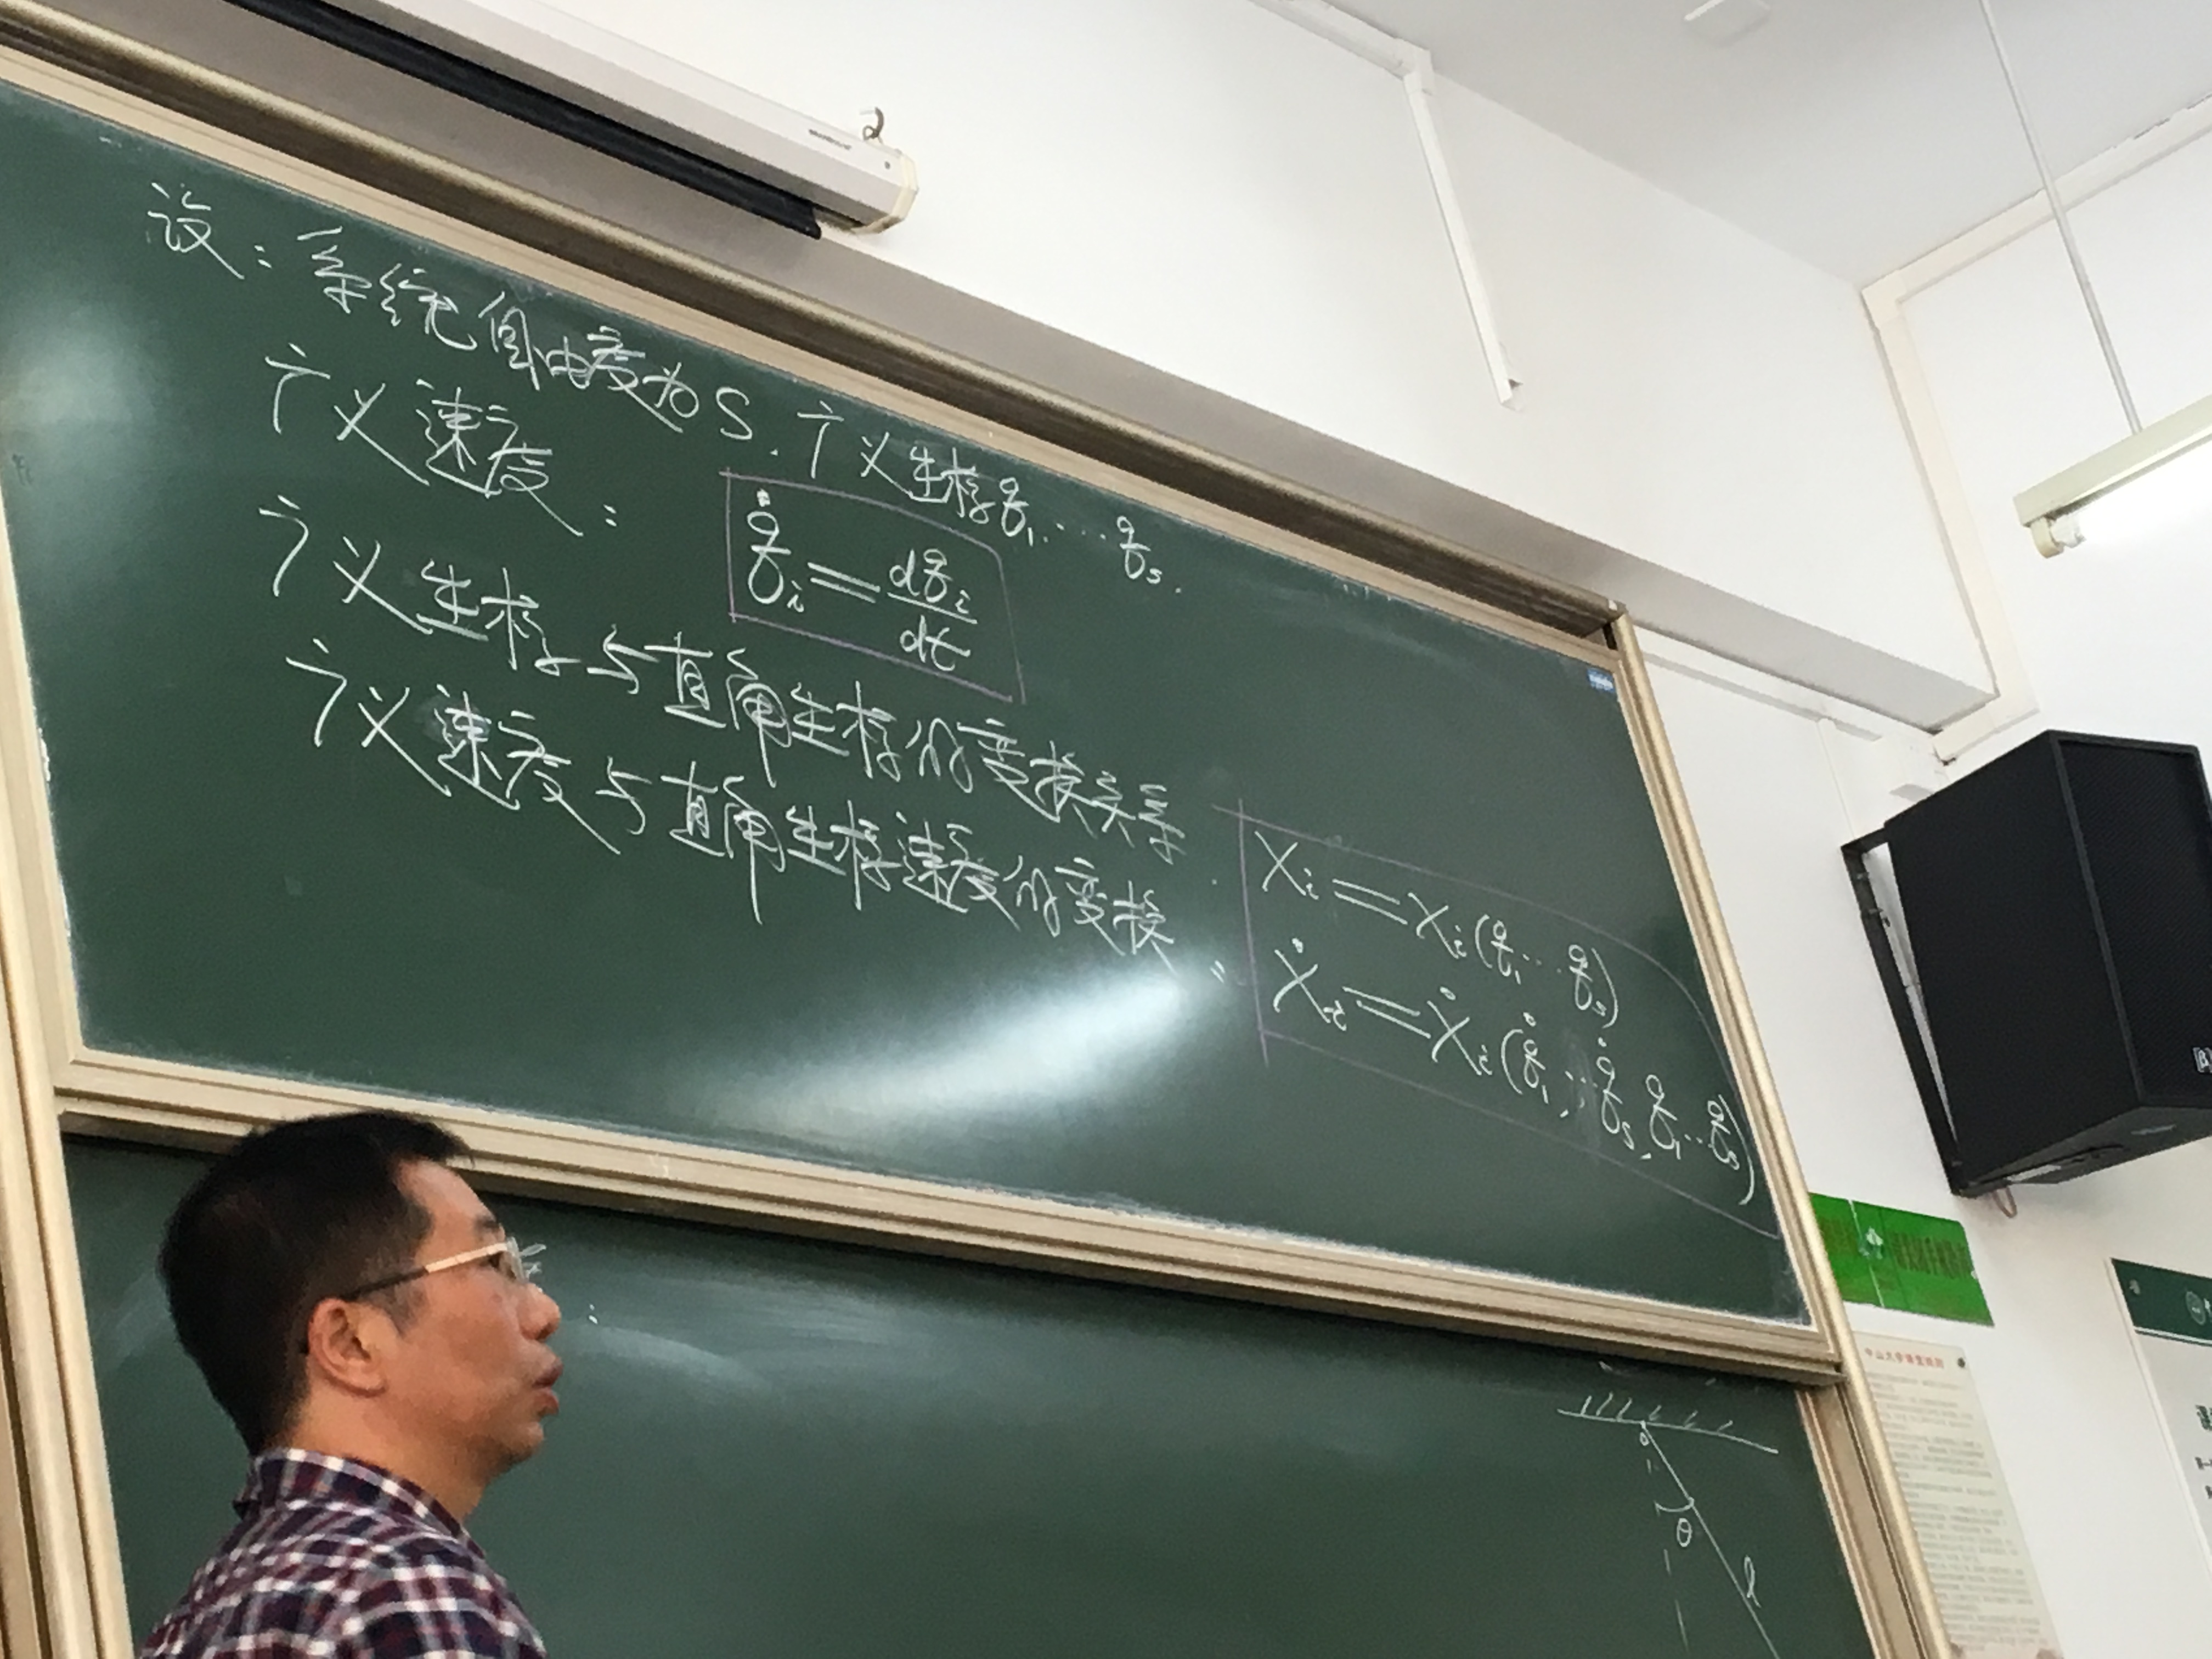 设：系统自由度为S.广义坐标q₁...qₛ.
广义速度：
q̇ᵢ=dqᵢ/dt
广义坐标与直角坐标的变换关系：
xᵢ=xᵢ(q₁...qₛ)
广义速度与直角坐标速度的变换：
ẋᵢ=ẋᵢ(q̇₁,...q̇ₛ,q₁...qₛ)
θ
l
中山大学课堂规则